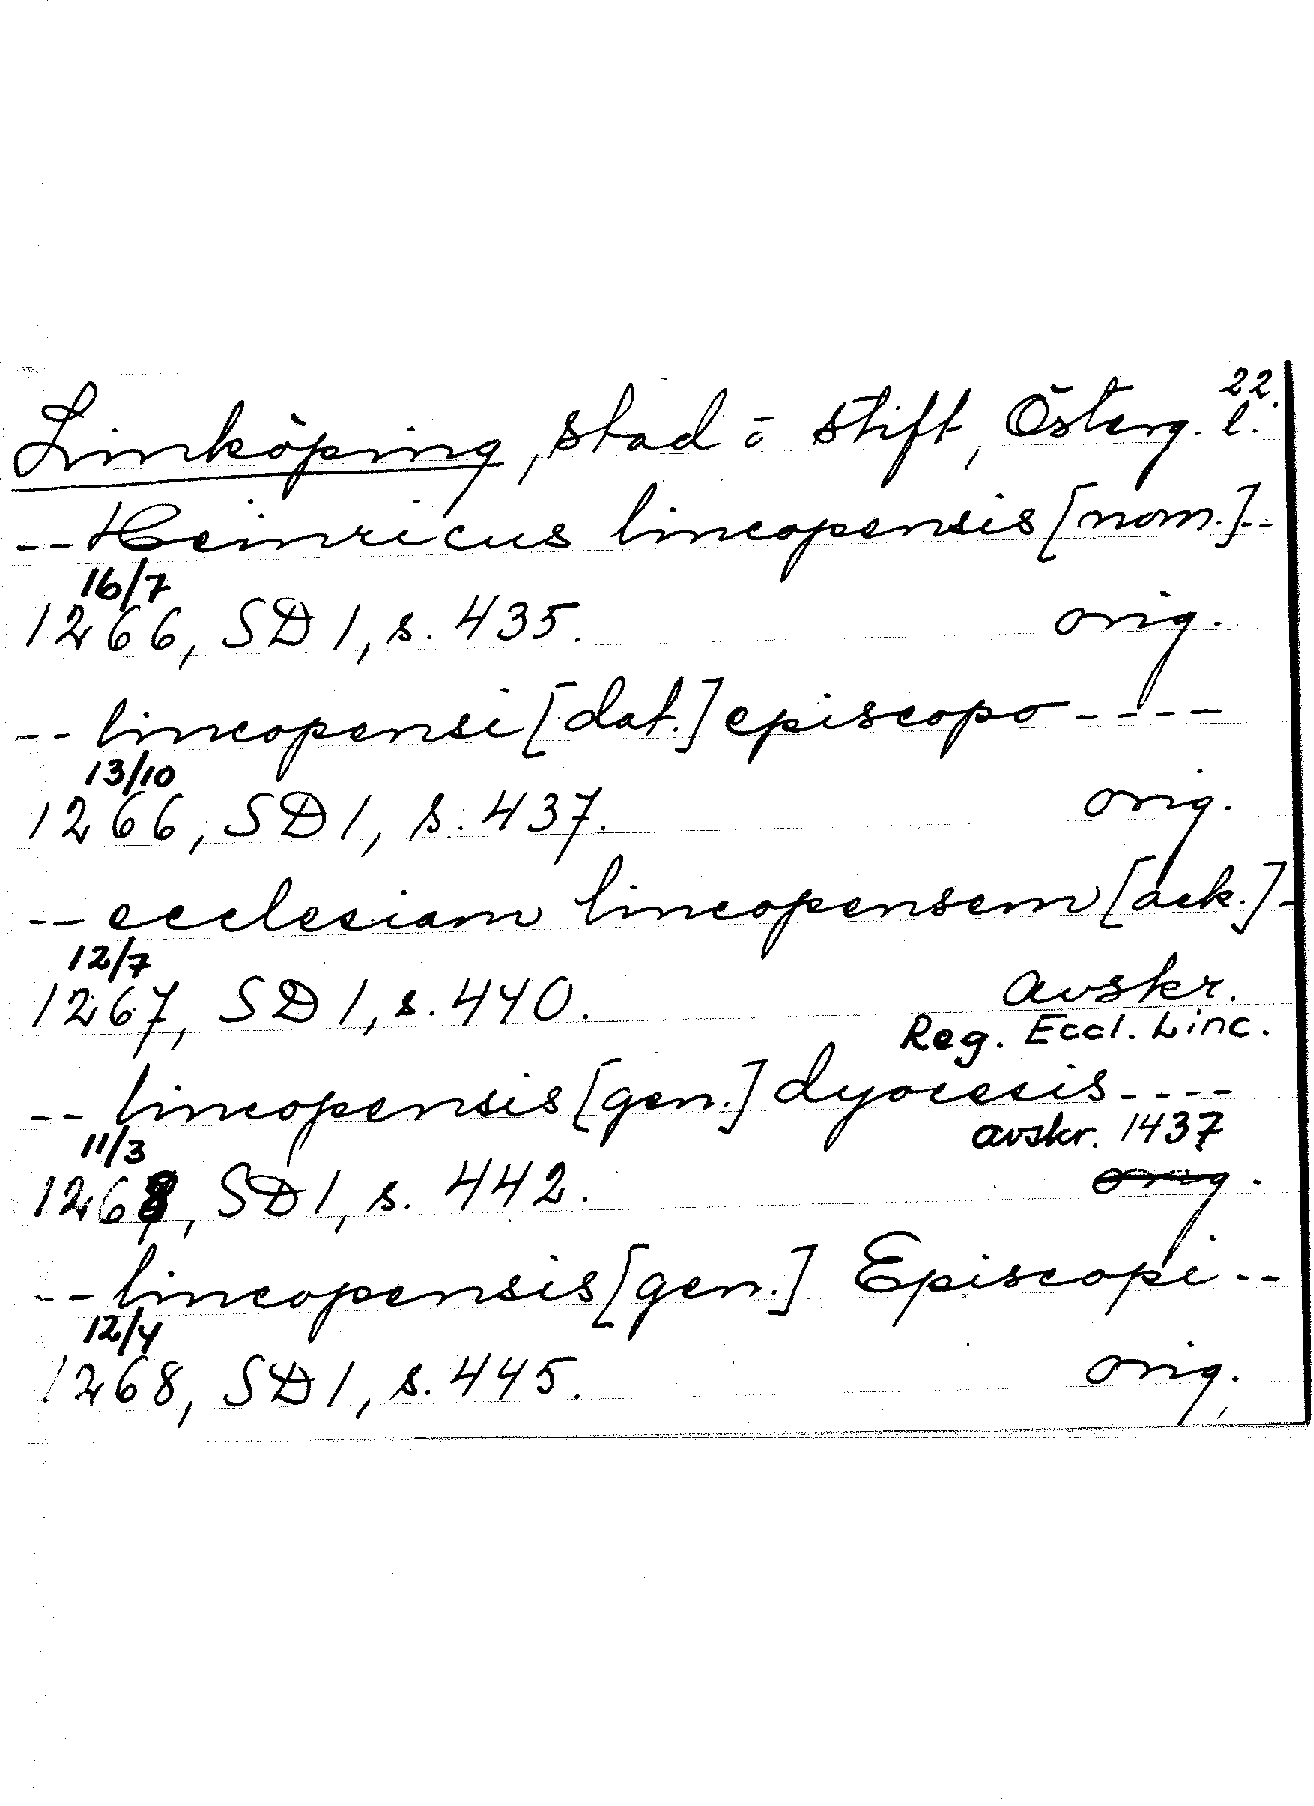 22.
Linköping, stad o stift, Österg. l.
-- Heinricus lincopensis [nom.] --
16/7
1266, SD 1, s. 435. orig.
-- lincopensi [dat.] episcopo ----
13/10
1266, SD 1, s. 437. orig.
-- ecclesiam lincopensem [ack.] -
12/7
1267, SD 1, s. 440. avskr.
Reg. Eccl. Linc.
-- lincopensis [gen.] dyocesis ----
11/3 avskr. 1437
1268, SD 1, s. 442. orig.
-- lincopensis [gen.] Episcopi --
12/4
1268, SD 1, s. 445. orig.